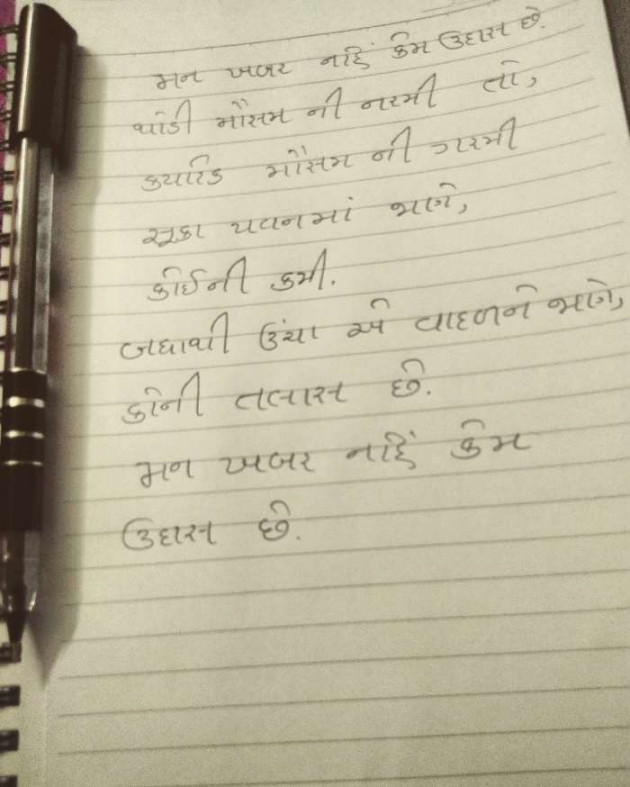 મન ખબર નહિં કેમ ઉદાસ છે.
થોડી મૌસમ ની નરમી તો,
ક્યારેક મૌસમ ની ગરમી
સૂકા પવનમાં જાણે,
કોઈની કમી.
બધાથી ઉંચા એ વાદળને જાણે,
કોની તલાસ છે.
મન ખબર નહિં કેમ
ઉદાસ છે.